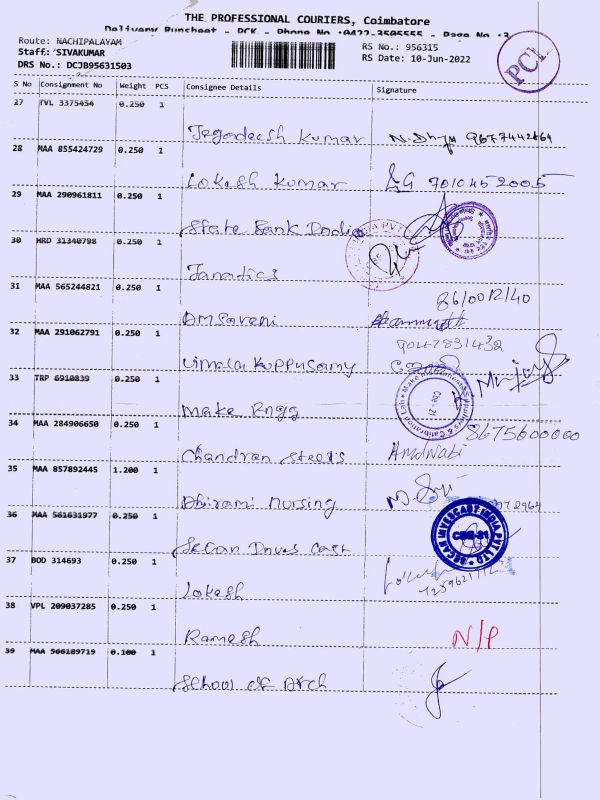 THE PROFESSIONAL COURIERS, Coimbatore
Delivery Runsheet - PCK - Phone No :0422-3505555 - Page No :3
Route: NACHIPALAYAM
RS No.: 956315
Staff: SIVAKUMAR
RS Date: 10-Jun-2022
DRS No.: DCJB95631503
PCI
S No Consignment No Weight PCS Consignee Details Signature
27 TVL 3375454 0.250 1
Jegadeesh Kumar
28 MAA 855424729 0.250 1
Lokesh Kumar 7010452005
29 MAA 290961811 0.250 1
State Bank India
30 HRD 31340798 0.250 1
Janatics
31 MAA 565244821 0.250 1
86/0012/40
32 MAA 291062791 0.250 1
9047831432
Vimala Kuppusamy
33 TRP 6910839 0.250 1
Make Engg
34 MAA 284906650 0.250 1
8675600000
Chandran Steels
35 MAA 857892445 1.200 1
Abirami Nursing
36 MAA 561631977 0.250 1
SECAN INVESCAST INDIA PVT LTD
CBE-21
Secan Inves Cast
37 BOD 314693 0.250 1
Lokesh
38 VPL 209037285 0.250 1
Ramesh N/P
39 MAA 566189719 0.100 1
School of Arch